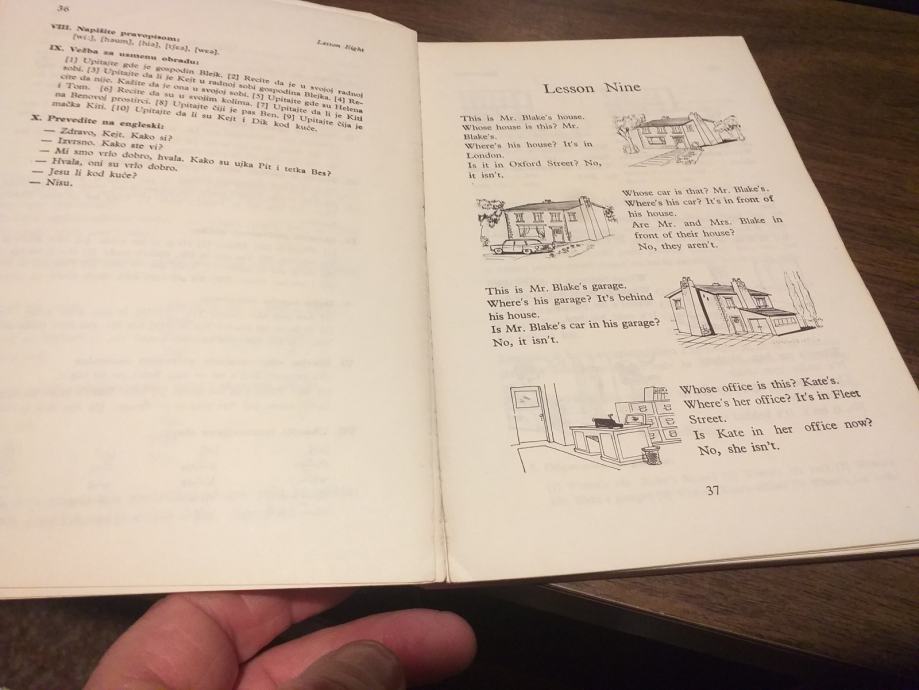 36
Lesson Eight
VIII. Napišite pravopisom:
[wi:], [houm], [hiə], [tʃɛə], [wɛə].
IX. Vežba za usmenu obradu:
[1] Upitajte gde je gospodin Blejk. [2] Recite da je u svojoj radnoj
sobi. [3] Upitajte da li je Kejt u radnoj sobi gospodina Blejka. [4] Re-
cite da nije. Kažite da je ona u svojoj sobi. [5] Upitajte gde su Helena
i Tom. [6] Recite da su u svojim kolima. [7] Upitajte da li je Kiti
na Benovoj prostirci. [8] Upitajte čiji je pas Ben. [9] Upitajte čija je
mačka Kiti. [10] Upitajte da li su Kejt i Dik kod kuće.
X. Prevedite na engleski:
— Zdravo, Kejt. Kako si?
— Izvrsno. Kako ste vi?
— Mi smo vrlo dobro, hvala. Kako su ujka Pit i tetka Bes?
— Hvala, oni su vrlo dobro.
— Jesu li kod kuće?
— Nisu.
Lesson Nine
This is Mr. Blake's house.
Whose house is this? Mr.
Blake's.
Where's his house? It's in
London.
Is it in Oxford Street? No,
it isn't.
Whose car is that? Mr. Blake's.
Where's his car? It's in front of
his house.
Are Mr. and Mrs. Blake in
front of their house?
No, they aren't.
This is Mr. Blake's garage.
Where's his garage? It's behind
his house.
Is Mr. Blake's car in his garage?
No, it isn't.
Whose office is this? Kate's.
Where's her office? It's in Fleet
Street.
Is Kate in her office now?
No, she isn't.
37